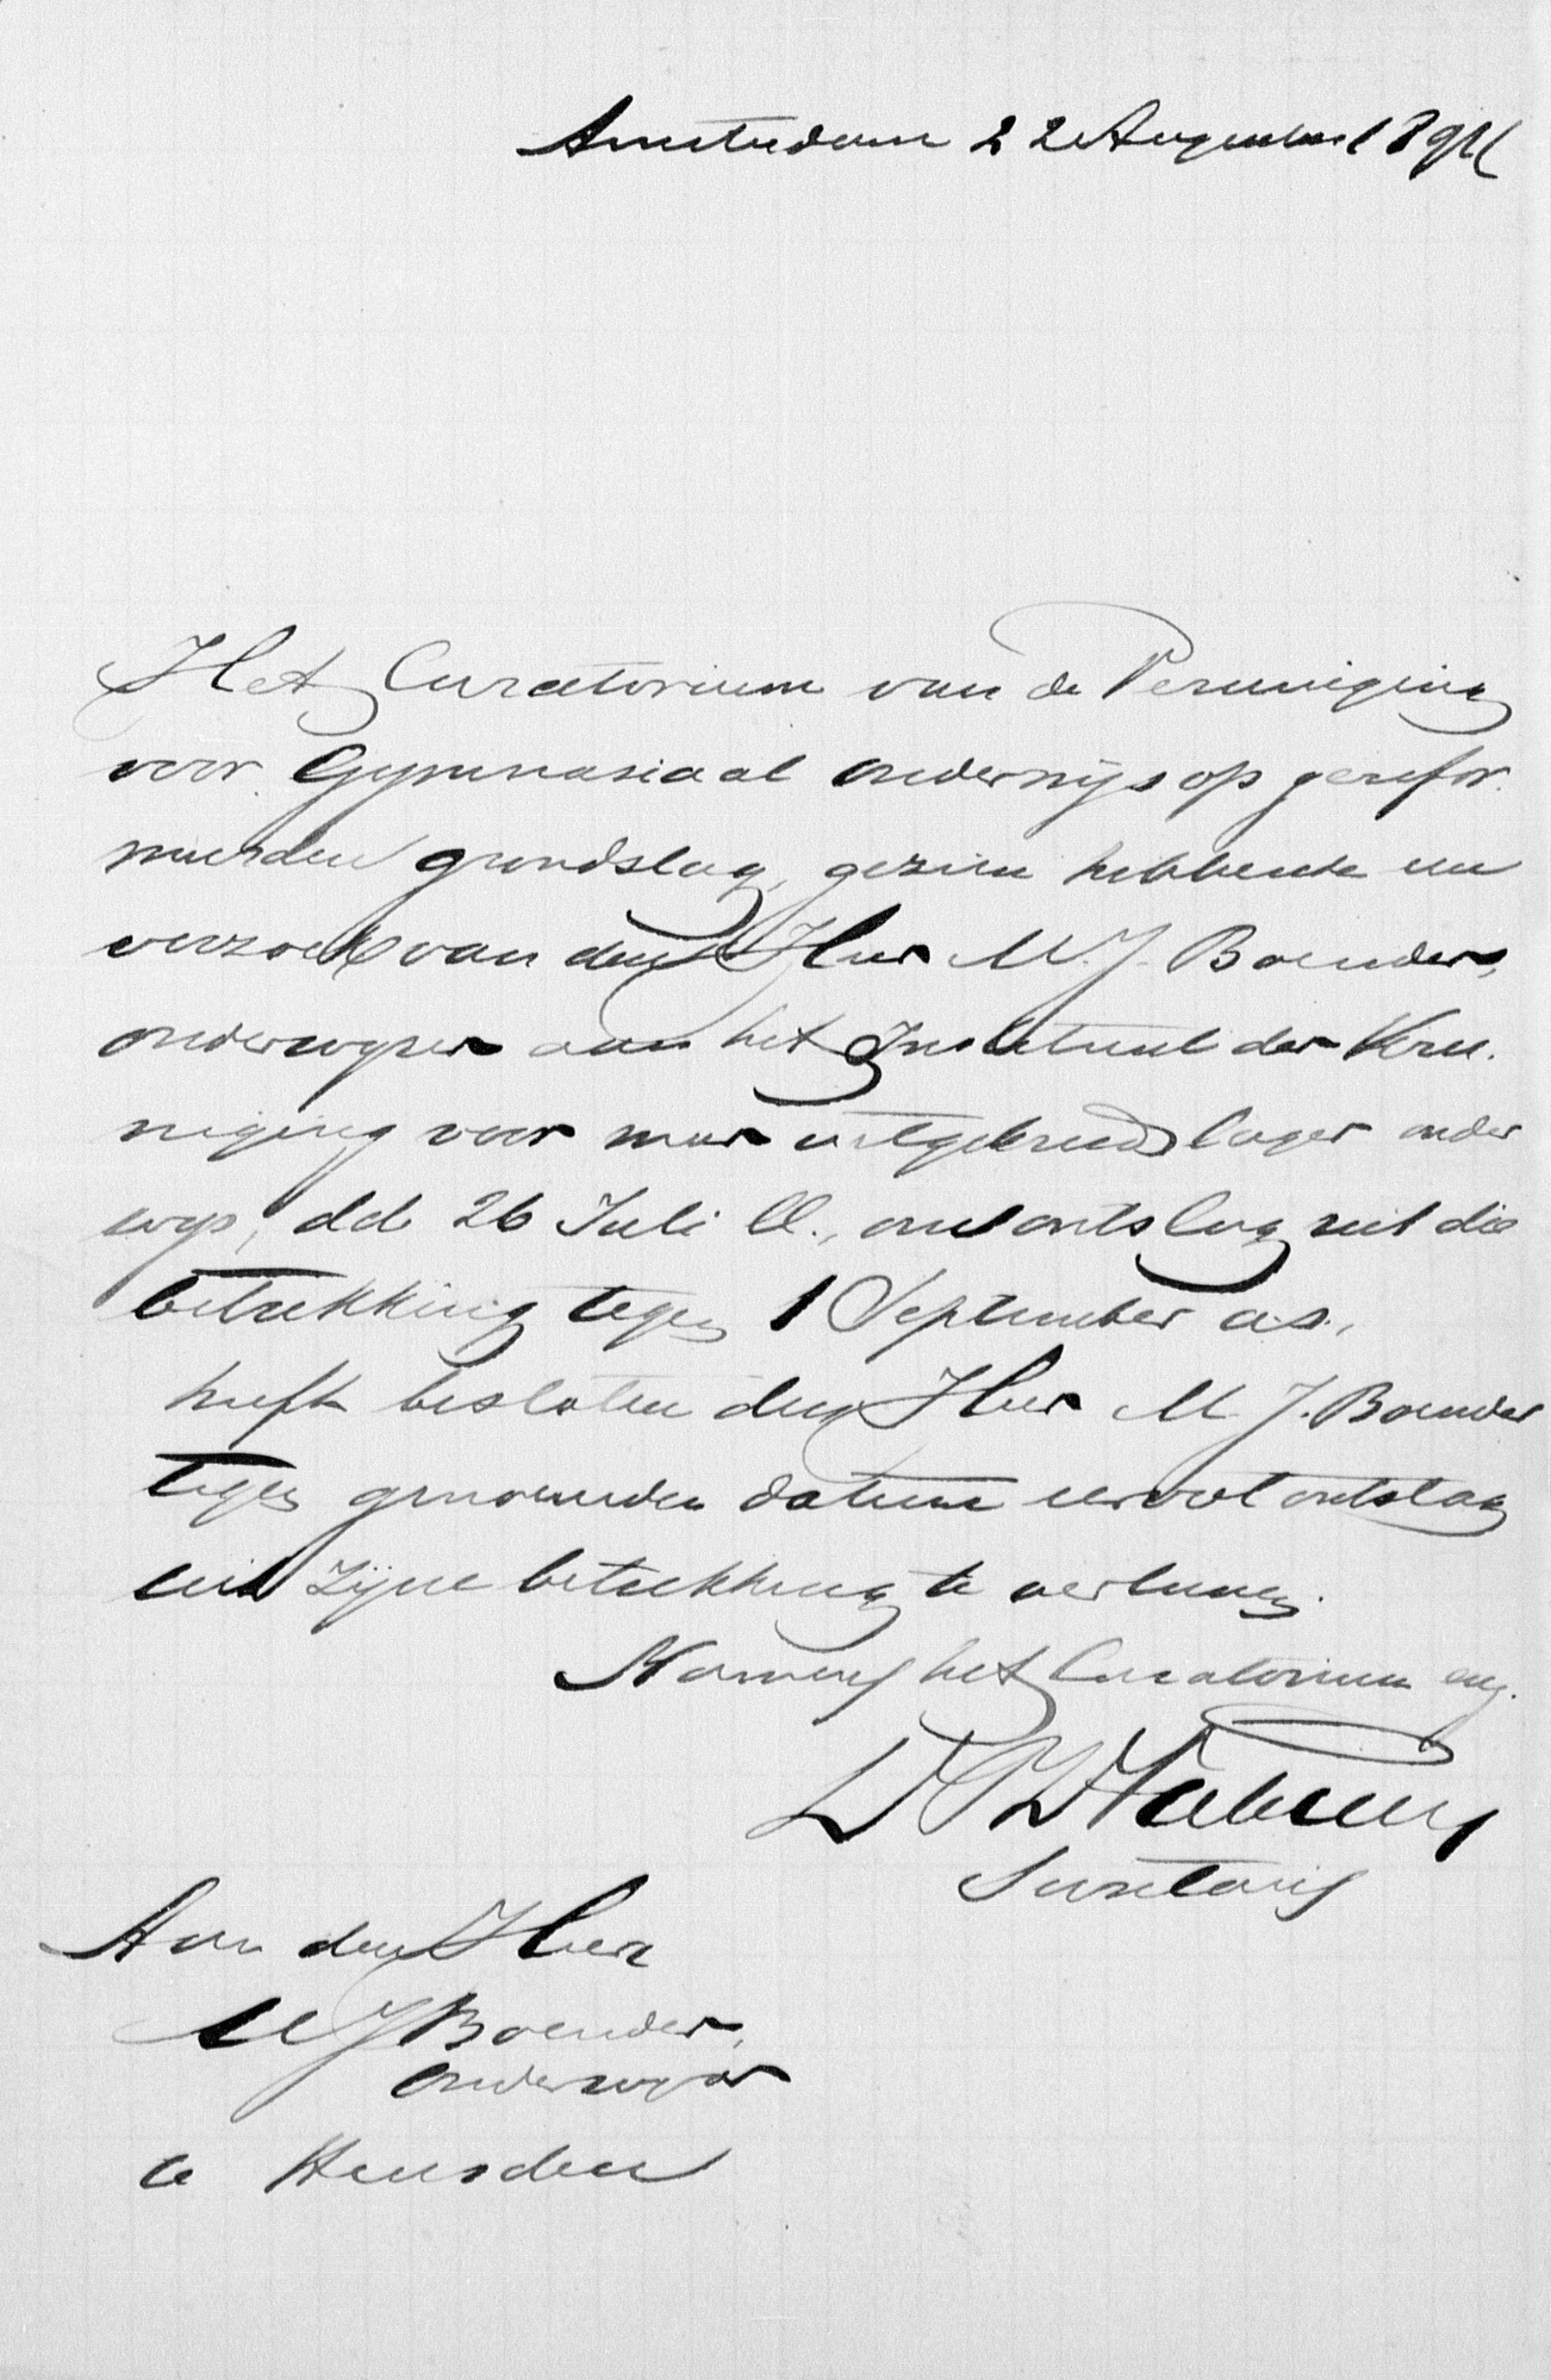 Amsterdam 22 Augustus 189
Het Curatorium van de Vereeniging
voor Gymnasiaal onderwijs op gerefor.
meerden grondslag, gezien hebbende een
verzoek van den Heer M. J. Boender,
onderwijzer aan het Instituut der Veree.
niging voor meer uitgebreid lager onder
wijs, dd. 26 Juli ll., om ontslag uit die
betrekking tegen 1 September a.s.,
heeft besloten den Heer M. J. Boender
tegen genoemden datum eervol ontslag
uit zijne betrekking te verleenen.
Namens het Curatorium
Secretaris
Aan den Heer
M J Boender,
onderwijzer
te Heusden